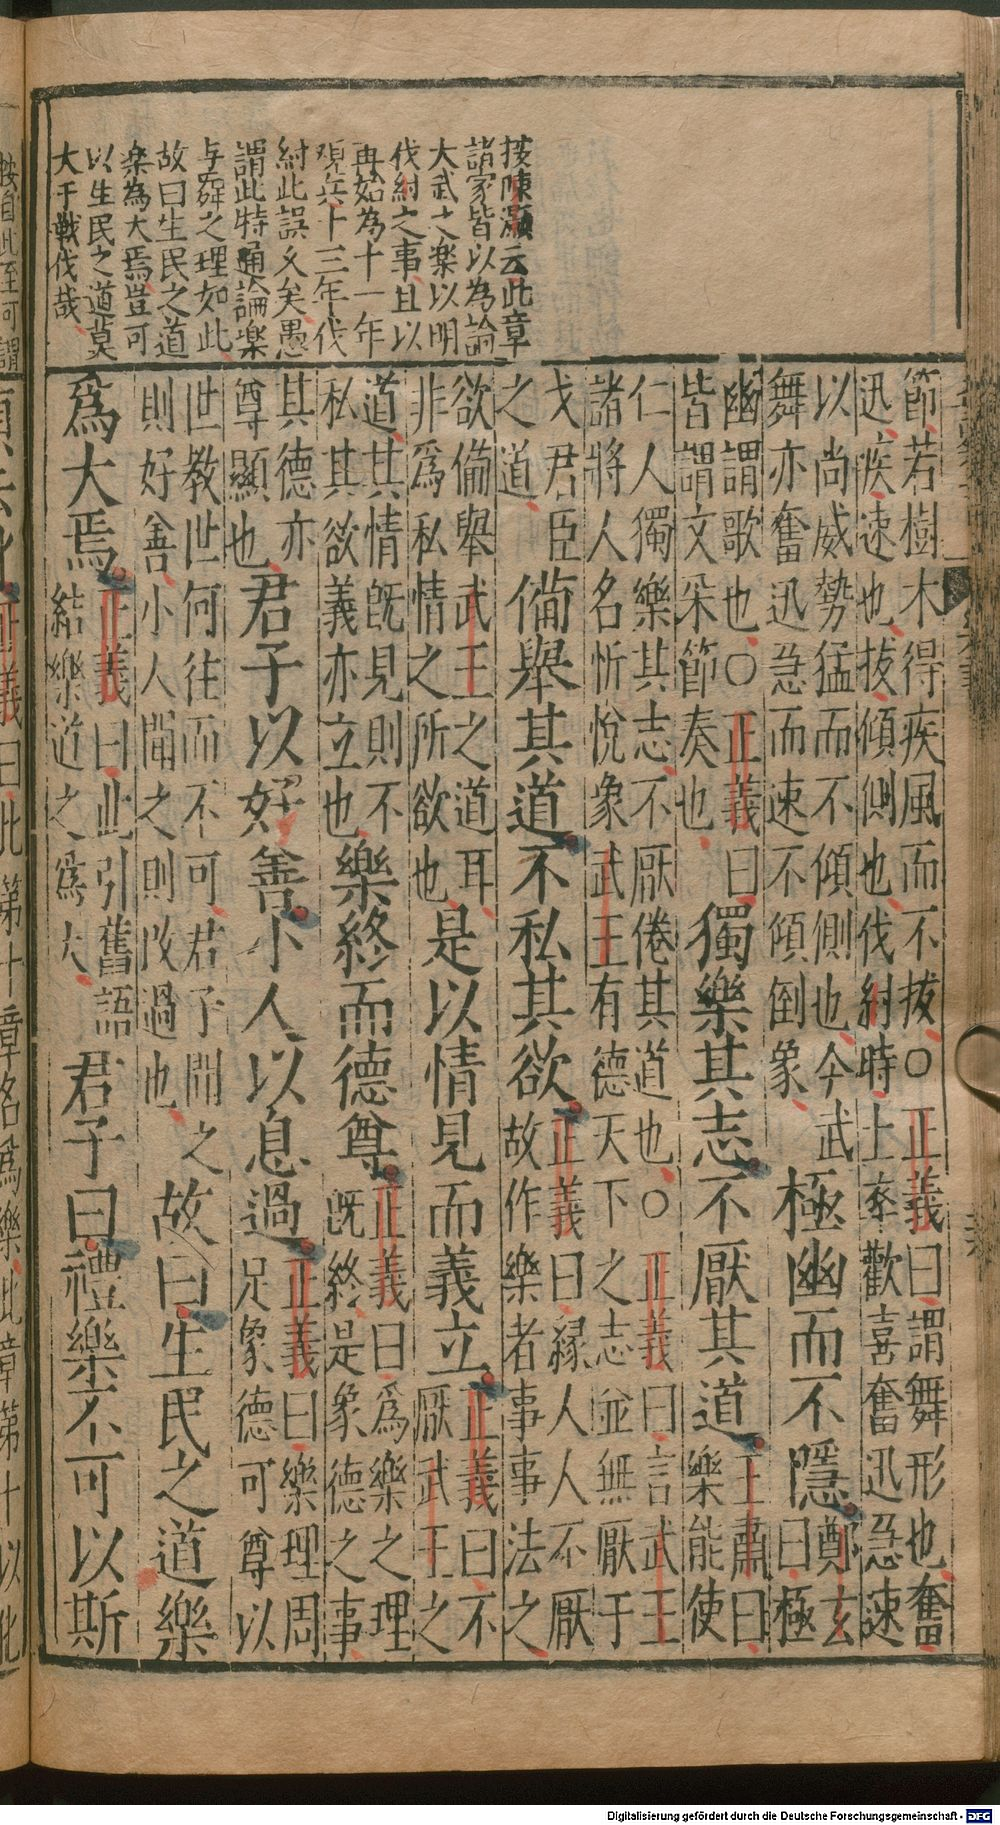 按陳灝云此章
諸家皆以為論
大武之楽以明
伐紂之事且以
再始為十一年
观兵十三年伐
紂此誤久矣愚
謂此特通論楽
与舜之理如此
故曰生民之道
楽為大焉豈可
以生民之道莫
大于戰伐哉
節若樹木得疾風而不拔○正義曰謂舞形也奮
迅疾速也拔傾側也伐紂時士卒歡喜奮迅急速
以尚威勢猛而不傾側也今武
舞亦奮迅急而速不傾倒象
極幽而不隱
鄭玄
曰極
幽謂歌也○正義曰
皆謂文采節奏也
獨樂其志不厭其道
王肅曰
樂能使
仁人獨樂其志不厭倦其道也○正義曰言武王
諸將人名忻悅象武王有德天下之志並無厭于
戈君臣
之道
備舉其道不私其欲
正義曰緣人人不厭
故作樂者事事法之
欲僃舉武王之道耳
非爲私情之所欲也
是以情見而義立
正義曰不
厭武王之
道其情旣見則不
私其欲義亦立也
樂終而德尊
正義曰爲樂之理
旣終是象德之事
其德亦
尊顯也
君子以好善小人以息過
正義曰樂理周
足象德可尊以
世教世何往而不可君子聞之
則好善小人聞之則改過也
故曰生民之道樂
爲大焉
正義曰此引舊語
結樂道之爲大
君子曰禮樂不可以斯
按自此至可謂
正義曰此第十章名爲樂此章第十以化
Digitalisierung gefördert durch die Deutsche Forschungsgemeinschaft - DFG